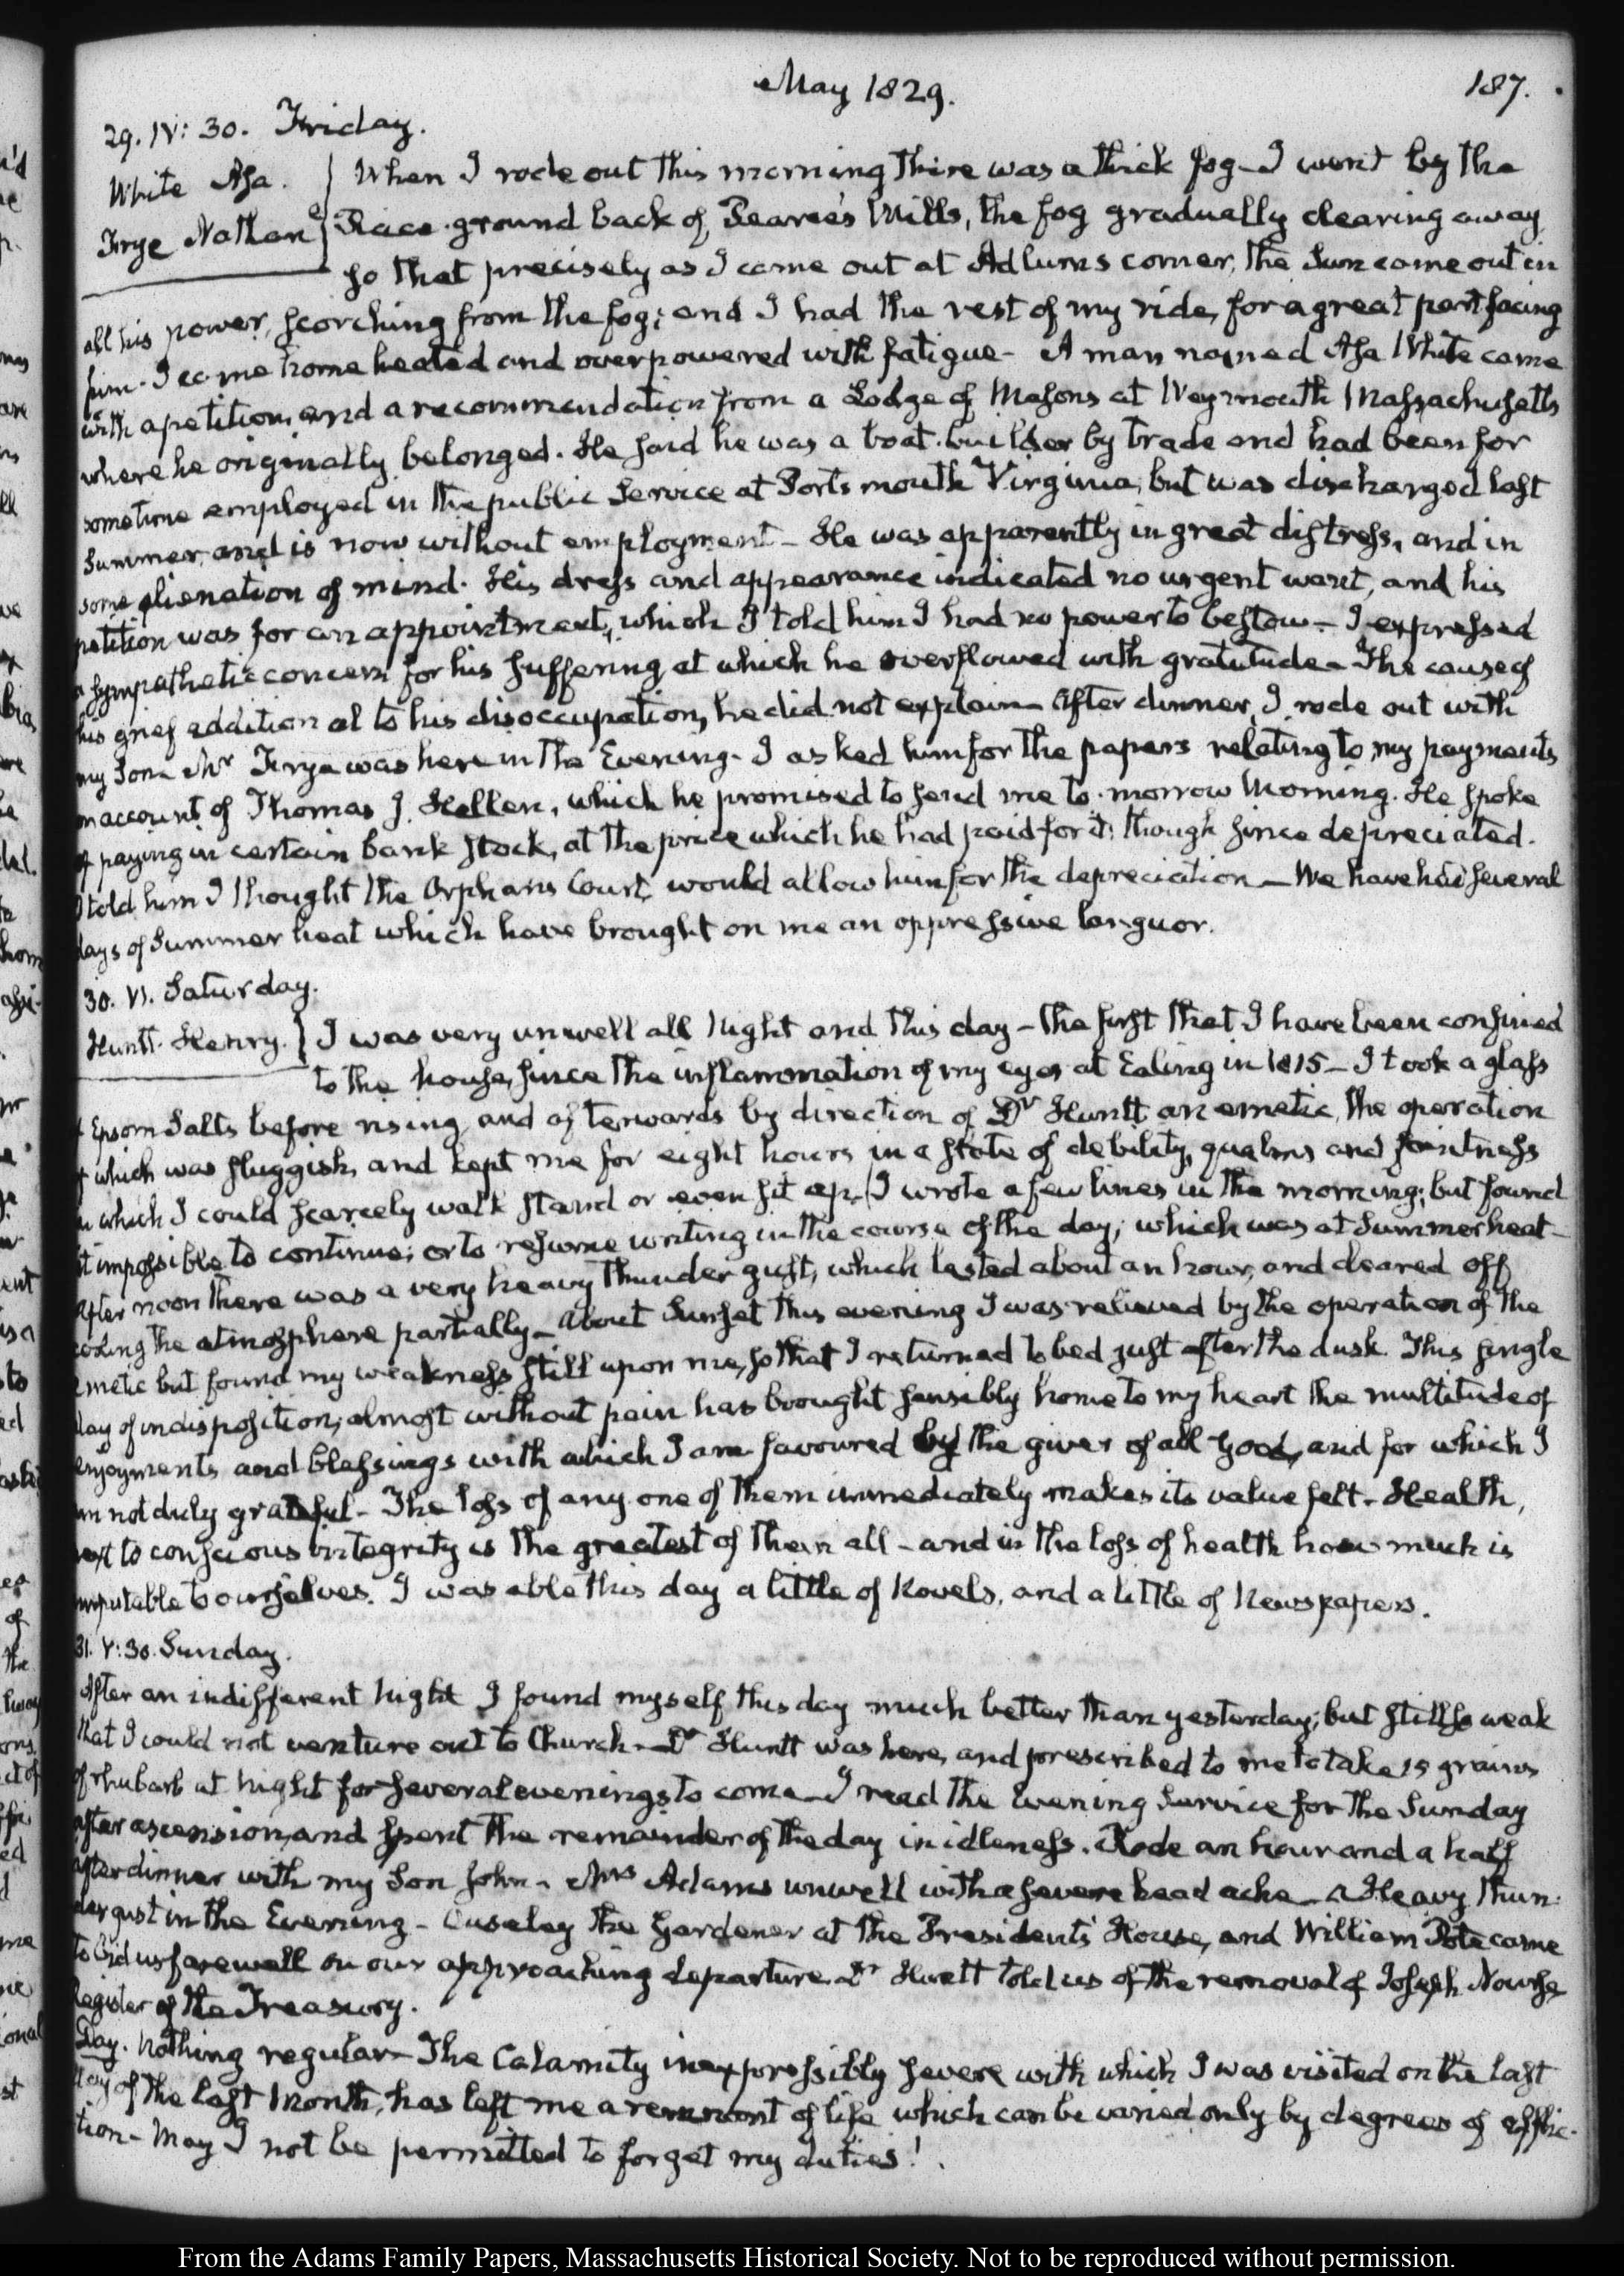 May 1829.
187.
29. IV: 30. Friday.
White Asa.
Frye Nathan
When I rode out this morning there was a thick fog - I went by the
Race-ground back of Pearce's Mills, the fog gradually clearing away
so that precisely as I came out at Adlums corner, the Sun came out in
all his power, scorching from the fog; and I had the rest of my ride, for a great part facing
him. I came home heated and overpowered with fatigue - A man named Asa White came
with a petition, and a recommendation from a Lodge of Masons at Weymouth Massachusetts
where he originally belonged. He said he was a boat-builder by trade and had been for
sometime employed in the public Service at Portsmouth Virginia, but was discharged last
Summer, and is now without employment - He was apparently in great distress, and in
some alienation of mind. His dress and appearance indicated no urgent want, and his
petition was for an appointment, which I told him I had no power to bestow - I expressed
a sympathetic concern for his suffering, at which he overflowed with gratitude - The cause of
his grief additional to his disoccupation, he did not explain - After dinner, I rode out with
my Son - Mr Frye was here in the Evening - I asked him for the papers relating to my payments
on account of Thomas J. Hellen, which he promised to send me to-morrow Morning. He spoke
of paying in certain bank stock, at the price which he had paid for it; though since depreciated.
I told him I thought the Orphans Court would allow him for the depreciation - We have had several
days of Summer heat which have brought on me an oppressive languor.
30. VI. Saturday.
Huntt. Henry.
I was very unwell all Night and this day - the first that I have been confined
to the house, since the inflammation of my eyes at Ealing in 1815 - I took a glass
of Epsom Salts before rising, and afterwards by direction of Dr Huntt an emetic, the operation
of which was sluggish, and kept me for eight hours in a state of debility, qualms and faintness
in which I could scarcely walk stand or even sit up. I wrote a few lines in the morning; but found
it impossible to continue; or to resume writing in the course of the day; which was at Summer heat -
After noon there was a very heavy Thunder gust, which lasted about an hour, and cleared off
cooling the atmosphere partially - About Sunset this evening I was relieved by the operation of the
emetic but found my weakness still upon me, so that I returned to bed just after the dusk. This single
day of indisposition, almost without pain has brought sensibly home to my heart the multitude of
enjoyments and blessings with which I am favoured by the giver of all good, and for which I
am not duly grateful - The loss of any one of them immediately makes its value felt - Health,
next to conscious integrity is the greatest of them all - and in the loss of health how much is
imputable to ourselves. I was able this day a little of Novels, and a little of Newspapers.
31. V: 30. Sunday.
After an indifferent Night I found myself this day much better than yesterday; but still so weak
that I could not venture out to Church - Dr Huntt was here, and prescribed to me to take 15 grains
of rhubarb at night for several evenings to come - I read the Evening Service for the Sunday
after ascension, and spent the remainder of the day in idleness. Rode an hour and a half
after dinner with my Son John - Mrs Adams unwell with a severe head ache - a Heavy Thun-
dergust in the Evening - Ouseley the Gardener at the President's House, and William Pote came
to bid us farewell on our approaching departure. Dr Huntt told us of the removal of Joseph Nourse
Register of the Treasury.
Day. Nothing regular - The Calamity inexpressibly severe with which I was visited on the last
day of the last Month, has left me a remnant of life which can be varied only by degrees of afflic-
tion - May I not be permitted to forget my duties!
From the Adams Family Papers, Massachusetts Historical Society. Not to be reproduced without permission.